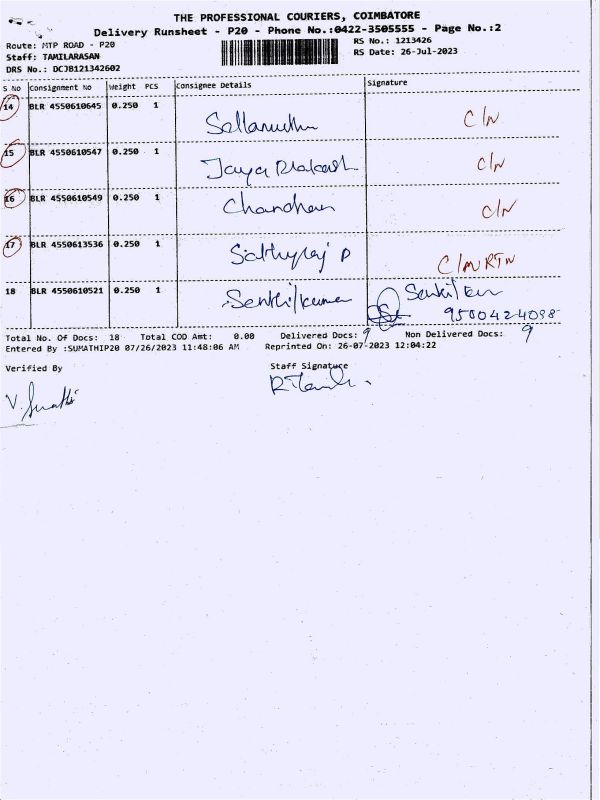 THE PROFESSIONAL COURIERS, COIMBATORE
Delivery Runsheet - P20 - Phone No.:0422-3505555 - Page No.:2
Route: MTP ROAD - P20
RS No.: 1213426
Staff: TAMILARASAN
RS Date: 26-Jul-2023
DRS No.: DCJB121342602
S No Consignment No Weight PCS Consignee Details Signature
14 BLR 4550610645 0.250 1 C/N
15 BLR 4550610547 0.250 1 Jaya Prakash C/N
16 BLR 4550610549 0.250 1 Chandran C/N
17 BLR 4550613536 0.250 1 Sathyraj P C/N RTN
18 BLR 4550610521 0.250 1 Senthilkumar
9500424098
Total No. Of Docs: 18 Total COD Amt: 0.00 Delivered Docs: 9 Non Delivered Docs: 9
Entered By :SUMATHIP20 07/26/2023 11:48:06 AM Reprinted On: 26-07-2023 12:04:22
Verified By Staff Signature